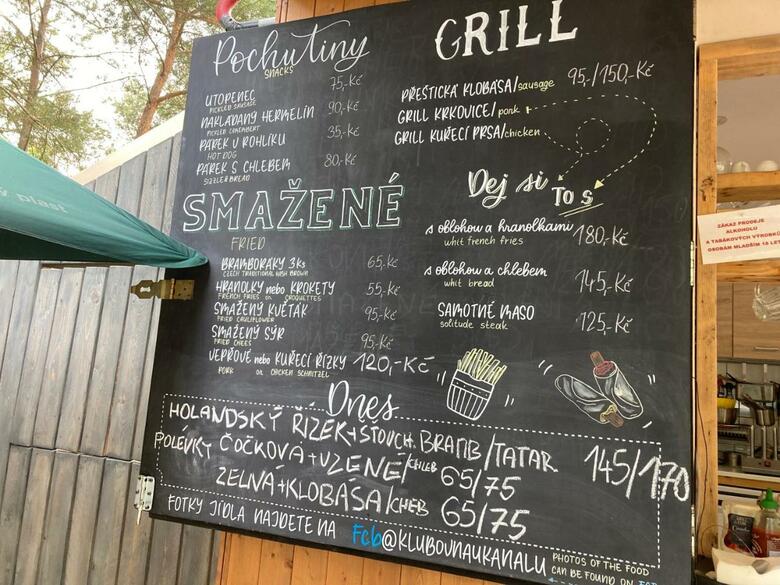 Pochutiny
SNACKS
75,-Kč
UTOPENEC
PICKLED SAUSAGE
NAKLÁDANÝ HERMELÍN 90,-Kč
PICKLED CAMEMBERT
PÁREK V ROHLÍKU 35,-Kč
HOT DOG
PÁREK S CHLEBEM 80,-Kč
SIZZLER BREAD
SMAŽENÉ
FRIED
BRAMBORÁKY 3ks 65,-Kč
CZECH TRADITIONAL HASH BROWN
HRANOLKY nebo KROKETY 55,-Kč
FRENCH FRIES OR CROQUETTES
SMAŽENÝ KVĚTÁK 95,-Kč
FRIED CAULIFLOWER
SMAŽENÝ SÝR 95,-Kč
FRIED CHEES
VEPŘOVÉ nebo KUŘECÍ ŘÍZKY 120,-Kč
PORK OR CHICKEN SCHNITZEL
GRILL
PŘEŠTICKÁ KLOBÁSA/sausage 95,-/150,-Kč
GRILL KRKOVICE/pork
GRILL KUŘECÍ PRSA/chicken
Dej si To s
s oblohou a hranolkami 180,-Kč
whit french fries
s oblohou a chlebem 145,-Kč
whit bread
SAMOTNÉ MASO 125,-Kč
solitude steak
Dnes
HOLANDSKÝ ŘÍZEK+ŠŤOUCH. BRAMB/TATAR 145/170
POLÉVKY ČOČKOVÁ+UZENÉ/CHLEB 65/75
ZELNÁ+KLOBÁSA/CHEB 65/75
FOTKY JÍDLA NAJDETE NA Fcb@KLUBOVNAUKANALU
PHOTOS OF THE FOOD
CAN BE FOUND ON
plast
ZÁKAZ PRODEJE
ALKOHOLU
A TABÁKOVÝCH VÝROBKŮ
OSOBÁM MLADŠÍM 18 LET